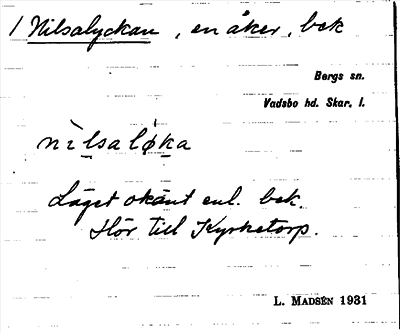 / Nilsalyckan, en åker, bek
Bergs sn.
Vadsbo hd. Skar. l.
nìlsaløka
Läget okänt enl. bek.
Hör till Kyrketorp.
L. MADSÉN 1931